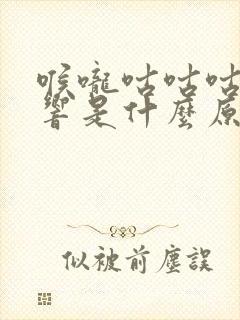 喉嚨咕咕咕
響是什麼原
似被前塵誤